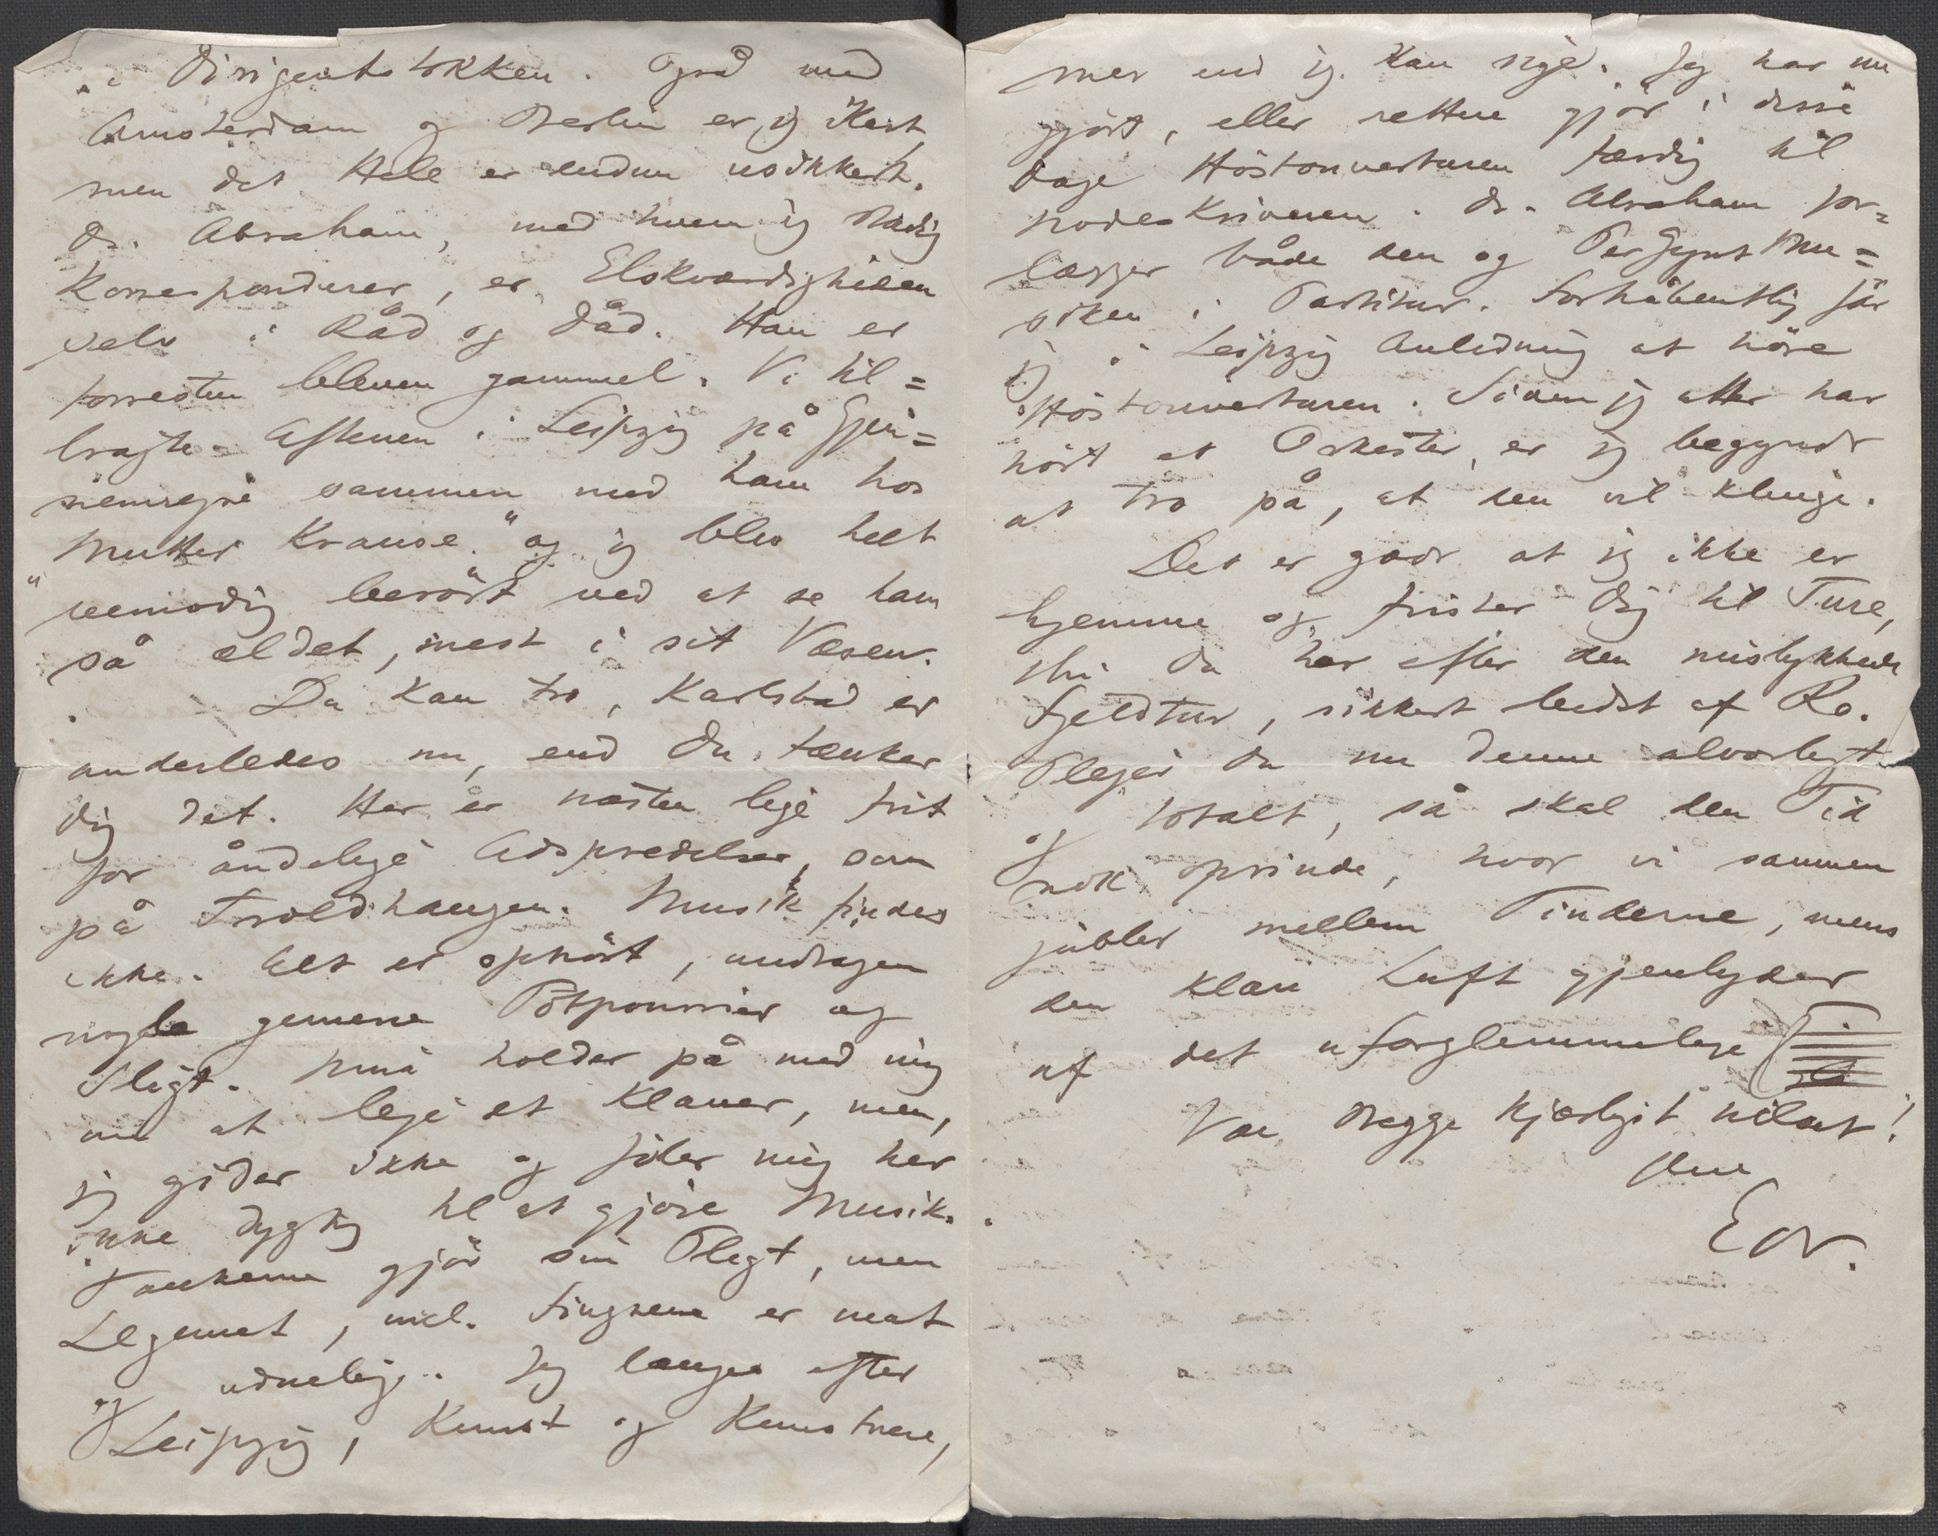 i Dirigentstokken. Også med
Amsterdam og Berlin er jeg
men det Hele er endnu usikkert.
Dr. Abraham, med hvem jeg stadig
korresponderer, er Elskværdigheden
selv i Råd og Dåd. Han er
forresten bleven gammel. Vi til=
bragte Aftenen i Leipzig på Gjen=
nemrejse sammen med ham hos
"Mutter Krause" og jeg blev helt
vemodig berört ved at se ham
så ældet, mest i sit Væsen.
Du kan tro, Karlsbad er
anderledes nu, end Du tænker
Dig det. Her er næsten lige frit
for åndelige Adspredelser, som
på Troldhaugen. Musik findes
ikke. Alt er ophört, undtagen
nogle gemene Potpourrier og
Sligt. Nina holder på med mig
om at leje et Klaver, men,
jeg gider ikke og föler mig her
ikke dygtig til at gjöre Musik.
Tankerne gjör sin Pligt, men
Legemet, incl. Fingrene er mat
og uduelig. Jeg længes efter
Leipzig, Kunst og Kunstnere,
mer end jeg kan sige. Jeg har nu
gjört, eller rettere gjör i disse
Dage Höstouverturen færdig til
Nodeskriveren. Dr. Abraham for=
lægger både den og Per Gynt Mu=
siken i Partitur. Forhåbentlig får
jeg i Leipzig Anledning at höre
Höstouverturen. Siden jeg atter har
hört et Orkester, er jeg begyndt
at tro på, at den vil klinge.
Det er godt at jeg ikke er
hjemme og frister Dig til Ture,
thi Du har efter den mislykkede
Fjeldtur, sikkert bedst af Ro.
Plejer Du nu denne alvorligt
og totalt, så skal den Tid
nok oprinde, hvor vi sammen
jubler mellem Tinderne, mens
den klare Luft gjenlyder
af det uforglemmelige
Vær Begge kjærligst hilset!
Din
Edv.